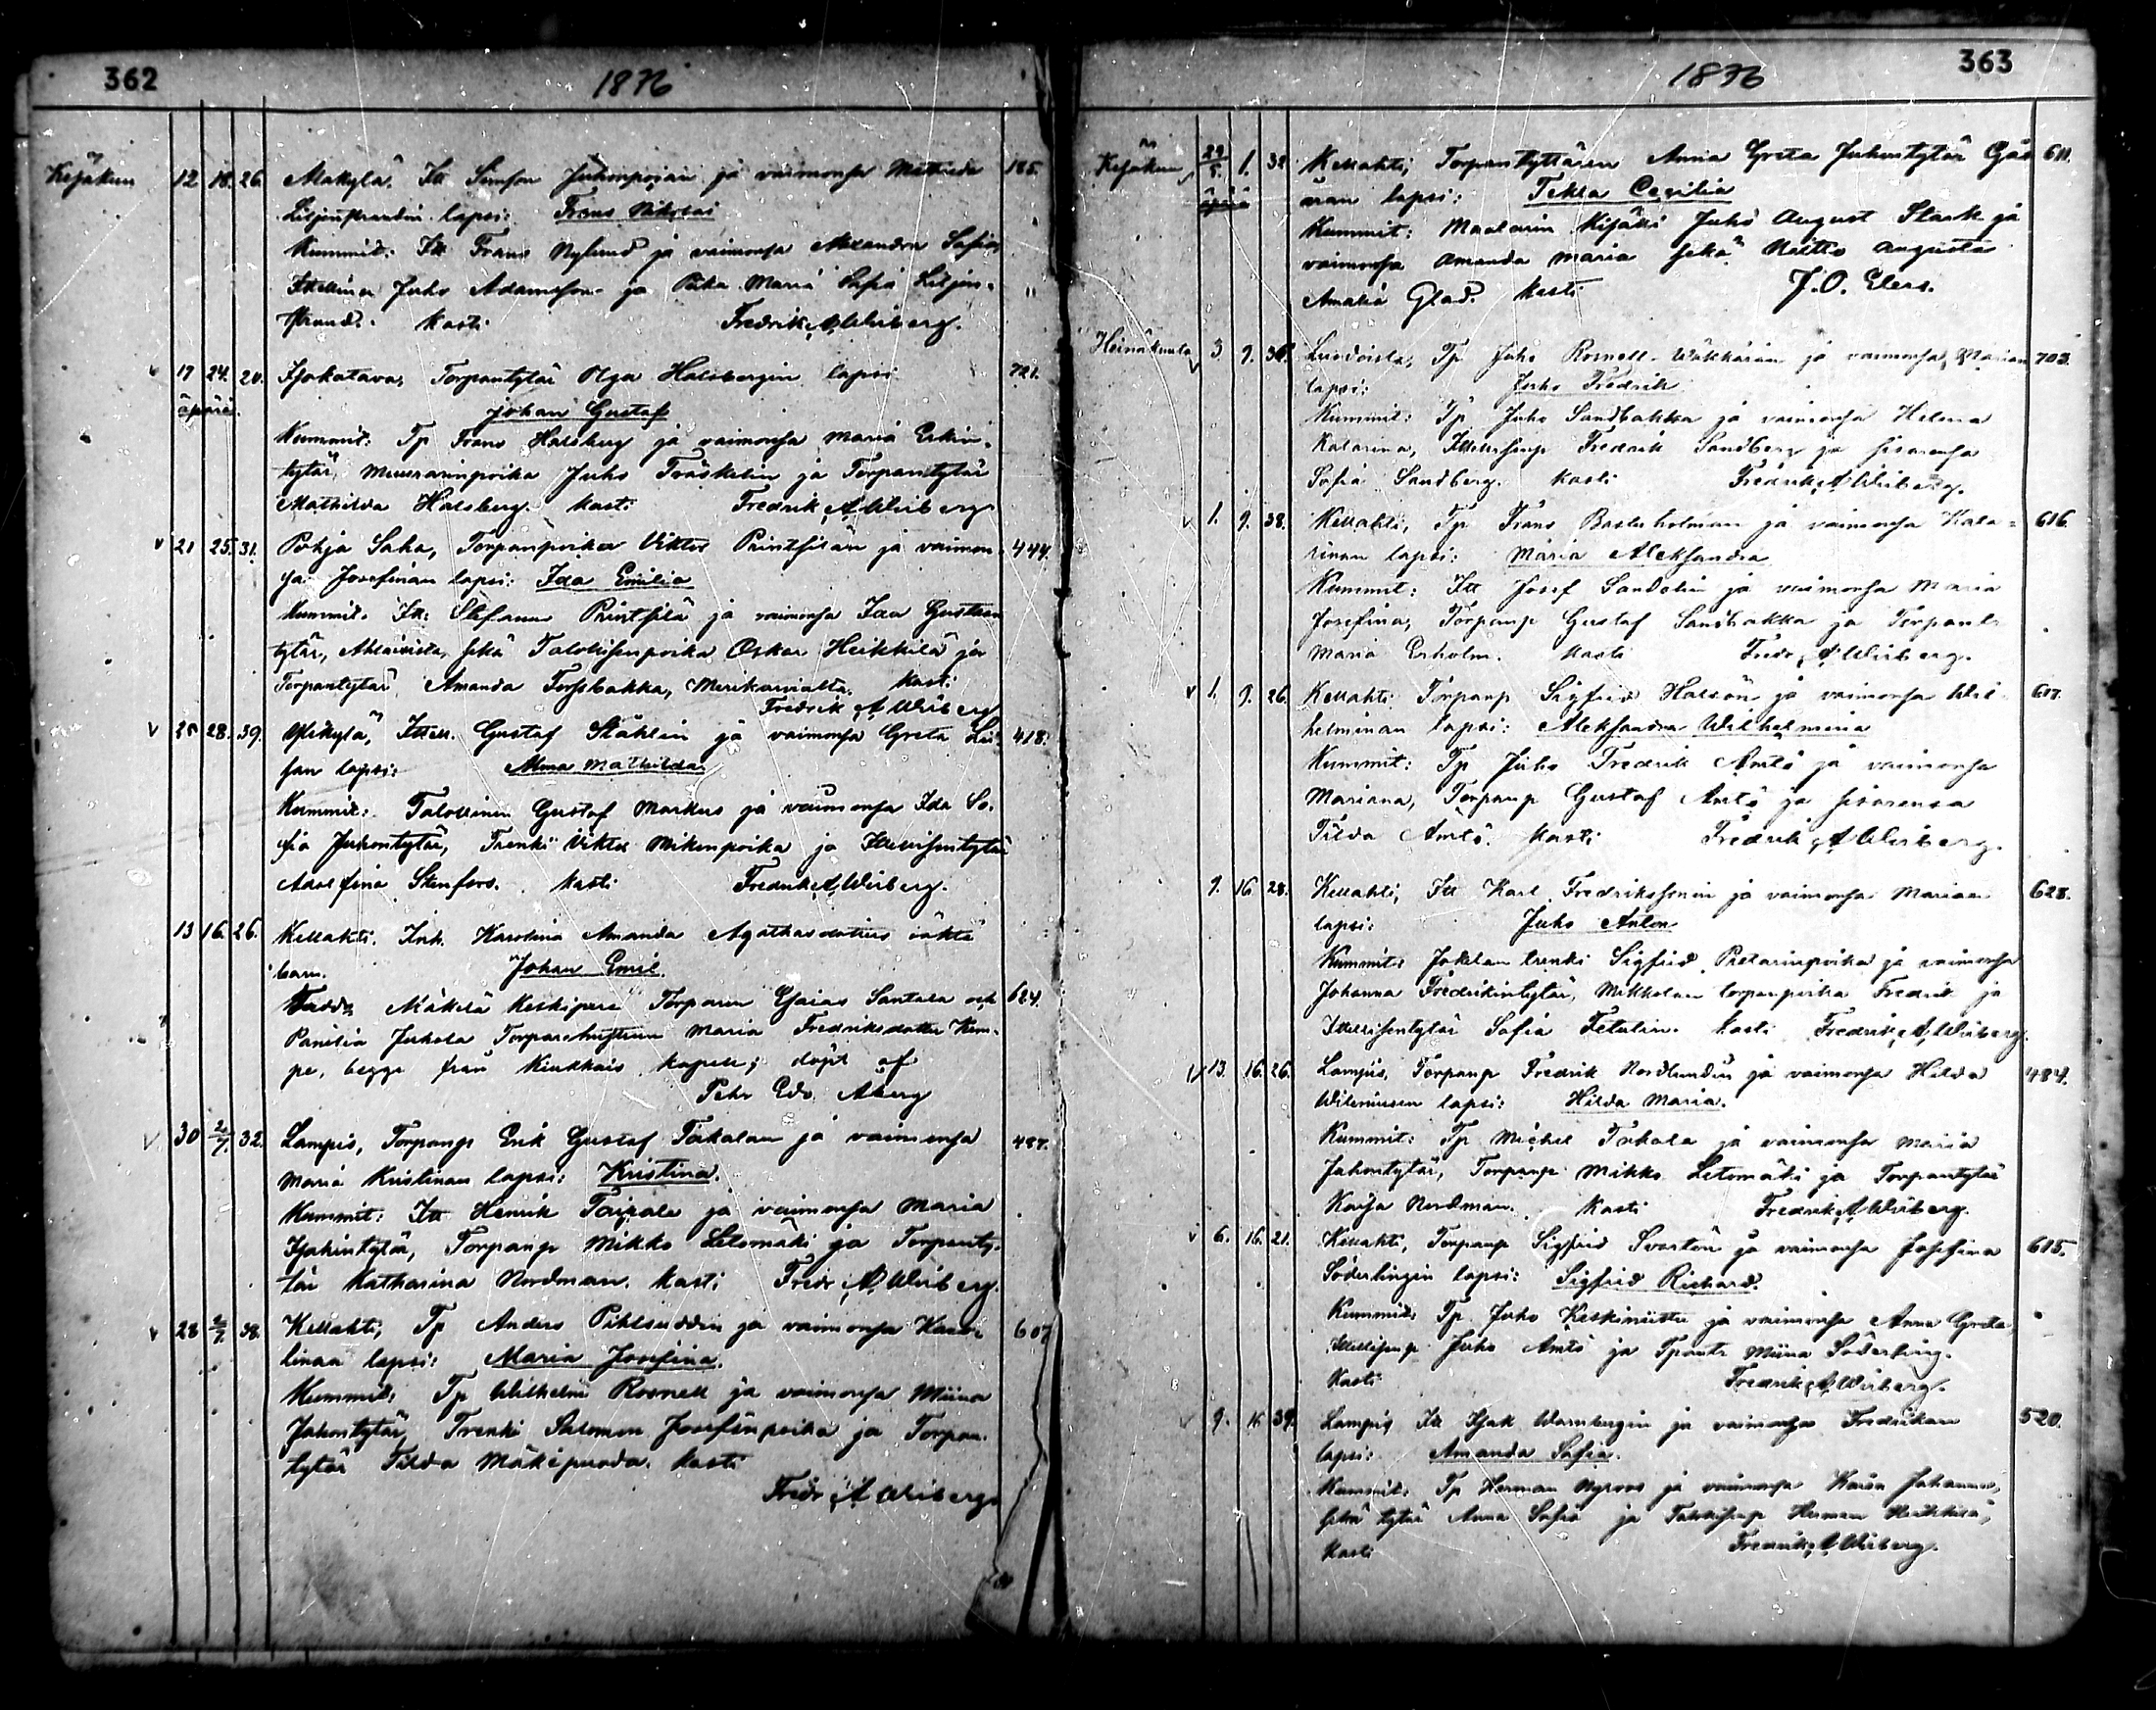 362
1876
Kesäkuu 12 18. 26. Makylä. Itt Simson Juhonpojan ja vaimonsa Mathilda 185.
Liljenstrandin lapsi: Frans Nikolai
Kummit: Itt Frans Nylund ja vaimonsa Alexandra Sofia,
Itsellinen Juho Adamsson ja Piika Maria Sofia Liljen-
strand. Kasti Fredrik A Wirberg.
v 17 24. 20. Isokatava, Torpantytär Olga Halsbergin lapsi 721.
äpärä. Johan Gustaf
Kummit: Tp Frans Halsberg ja vaimonsa Maria Erkin-
tytär, Muurarinpoika Juho Träskelin ja Torpantytär
Mathilda Halsberg. Kasti Fredrik A Wirberg
v 21 25. 31. Pohja Saha, Torpanpoika Viktor Printsilän ja vaimon- 444.
sa Josefinan lapsi: Ida Emilia
Kummit. Itt: Stefanus Printsilä ja vaimonsa Ida Gustaan
tytär, Ahlaisista, sekä Talollisenpoika Oskar Heikkilä ja
Torpantytär Amanda Torsbakka, Merikarvialta. Kasti
Fredrik A Wirberg
v 25 28. 39. Ylikylä, Itsell. Gustaf Ståhlin ja vaimonsa Greta Lii- 418.
san lapsi: Alma Mathilda
Kummit: Talollinen Gustaf Markus ja vaimonsa Ida So-
fia Juhontytär, Trenki Viktor Mikonpoika ja Itsellisentytär
Adolfina Stenfors. Kasti Fredrik A Wirberg.
13 16. 26. Kellahti. Inh. Karolina Amanda Agathasdotters oäkta
barn. Johan Emil.
Fadd: Mäkelä Keskipere Torparen Esaias Santala och 624.
Panilia Juhola Torparehustrun Maria Fredriksdotter Kum-
pe, begge från Kiukkais kapell; döpt af
Pehr Edv. Åberg
v 30 2/7. 32. Lampis, Torpanp Erik Gustaf Takalan ja vaimonsa 487.
Maria Kristinan lapsi: Kristina.
Kummit: Itt Henrik Taipale ja vaimonsa Maria
Isakintytär, Torpanp Mikko Letomäki ja Torpanty-
tär Katharina Nordman. Kasti Fredr A Wirberg.
v 28 2/7. 38. Kellahti, Tp Anders Pihlsuddin ja vaimonsa Karo- 607
linan lapsi: Maria Josefina.
Kummit: Tp Wilhelm Rosnell ja vaimonsa Miina
Juhontytär, Trenki Salomon Josefinpoika ja Torpan-
tytär Tilda Mäkipuoda. Kasti
Fredr A Wirberg
363
1876
Kesäkuu 29/5. 1. 32 Kellahti, Torpantyttären Anna Greta Juhontytär 611.
äpärä lapsi: Tekla Cecilia
Kummit: Maalarin Kisälli Juho August Stark ja
vaimonsa Amanda Maria sekä Neitto Augusta
Amalia Glad. Kasti J. O. Elers.
Heinäkuulla v 3. 9. 36. Luodoista, Tp Juho Rosnell ja vaimonsa Marian 703.
lapsi: Juho Fredrik
Kummit: Tp Juho Sandbakka ja vaimonsa Helena
Katarina, Itsellisenp Fredrik Sandberg ja sisarensa
Sofia Sandberg. Kasti Fredrik A Wirberg.
v 1. 9. 38. Kellahti, Tp Frans Basterholman ja vaimonsa Kata- 616.
rinan lapsi: Maria Aleksandra
Kummit: Itt Josef Sandelin ja vaimonsa Maria
Josefina, Torpanp Gustaf Sandbakka ja Torpant.
Maria Erholm. Kasti Fredr A Wirberg.
v 1. 9. 26. Kellahti Torpanp Sigfrid Hallsön ja vaimonsa Wil- 617.
helminan lapsi: Aleksandra Wilhelmina
Kummit: Tp Juho Fredrik Amtö ja vaimonsa
Mariana, Torpanp Gustaf Amtö ja sisarensa
Tilda Amtö. Kasti Fredrik A Wirberg.
9. 16 28. Kellahti, Itt Karl Fredrikssonin ja vaimonsa Marian 628.
lapsi: Juho Anton
Kummit: Jokelan trenki Sigfrid Pietarinpoika ja vaimonsa
Johanna Fredrikintytär, Mikkolan torpanpoika Fredrik ja
Itsellisentytär Sofia Fetalin. Kasti Fredrik A Wirberg.
v 13. 16. 26. Lampis, Torpanp Fredrik Nordlundin ja vaimonsa Hilda 484.
Wilemiinan lapsi: Hilda Maria.
Kummit: Tp Michel Takala ja vaimonsa Maria
Juhontytär, Torpanp Mikko Letomäki ja Torpantytär
Kaisa Nordman. Kasti Fredrik A Wirberg.
v 6. 16. 21. Kellahti, Torpanp Sigfrid Svartön ja vaimonsa Josefina 615.
Söderlingin lapsi: Sigfrid Richard.
Kummit: Tp Juho Keskiniittu ja vaimonsa Anna Greta,
Itsellisenp Juho Amtö ja Tpantr Miina Söderling.
Kasti Fredrik A Wirberg.
v 9. 16 39. Lampis, Itt Isak Warnbergin ja vaimonsa Fredrikan 520.
lapsi: Amanda Sofia.
Kummit: Tp Herman Nyroos ja vaimonsa Kaisa Johanna,
sekä tytär Anna Sofia ja Talollisenp Herman Heikkilä,
Kasti Fredrik A Wirberg.